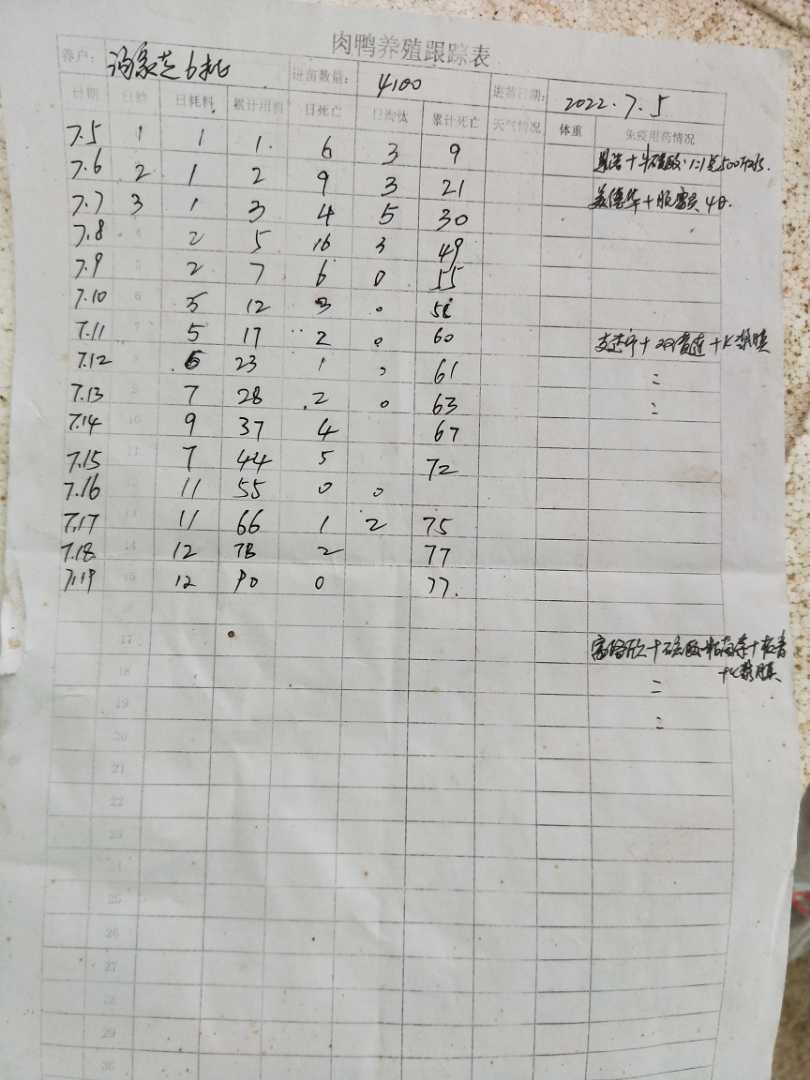 肉鸭养殖跟踪表
养户： 6批 进苗数量： 4100 进苗日期： 2022.7.5
日期 日龄 日耗料 累计用料 日死亡 日淘汰 累计死亡 天气情况 体重 免疫用药情况
7.5 1 1 1. 6 3 9
7.6 2 1 2 9 3 21
7.7 3 1 3 4 5 30 4日.
7.8 4 2 5 16 3 49
7.9 5 2 7 6 0 55
7.10 6 5 12 3 0
7.11 7 5 17 2 0 60
7.12 6 23 1 0 61 =
7.13 9 7 28 2 0 63 =
7.14 10 9 37 4 67
7.15 11 7 44 5 72
7.16 11 55 0 0
7.17 13 11 66 1 2 75
7.18 14 12 78 2 77
7.19 15 12 90 0 77.
17
18 =
19 =
20
21
22
23
24
25
26
27
28
29
30